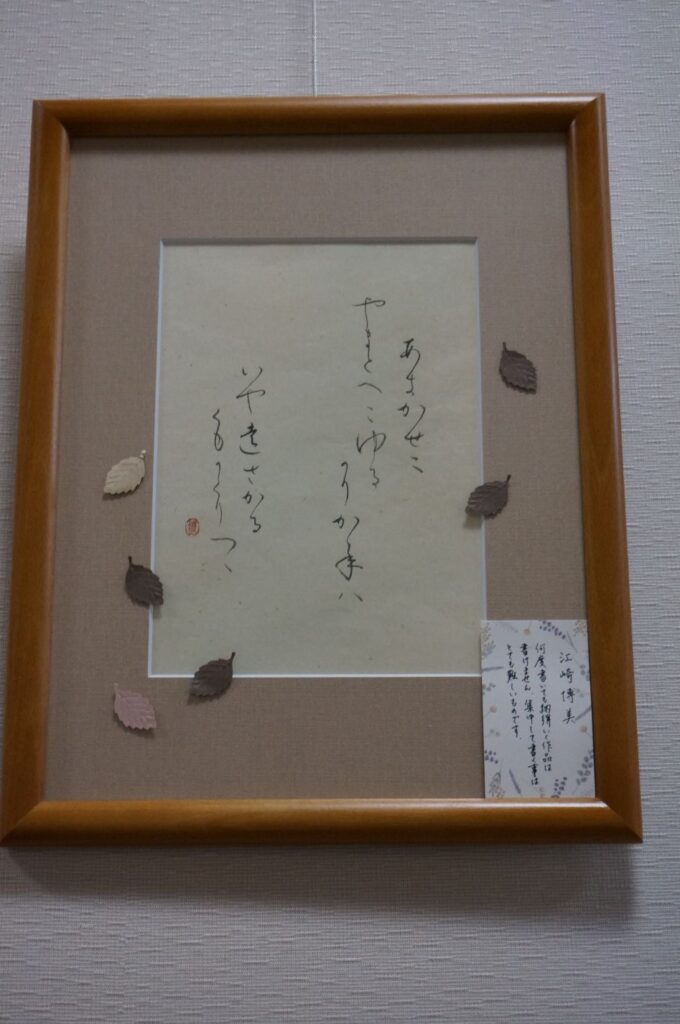 あきかせニ
やまとへこゆるかりか年ハ
いや遠さかる
くもかくりつゝ
江崎博美
何度書いても納得いく作品は
書けません。集中して書く事は
とても難しいものです。